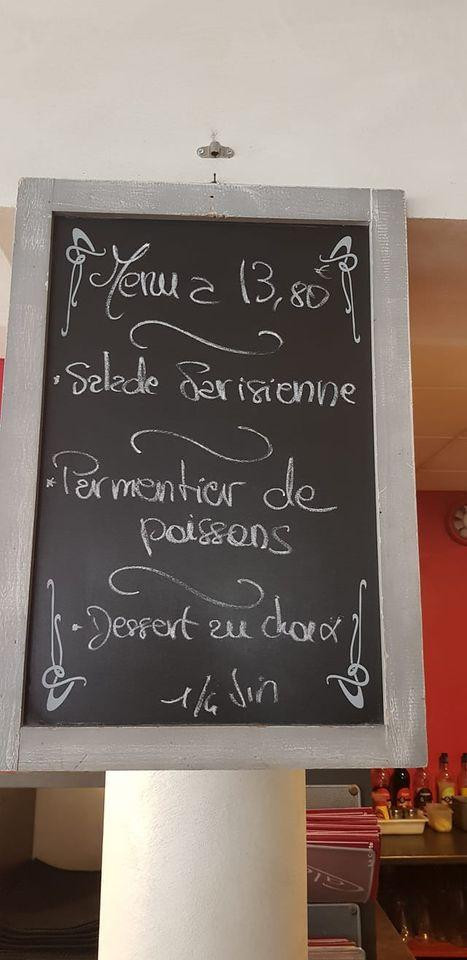 Menu à 13,80€
• Salade Parisienne
* Parmentier de
poissons
• Dessert au choix
1/4 Vin